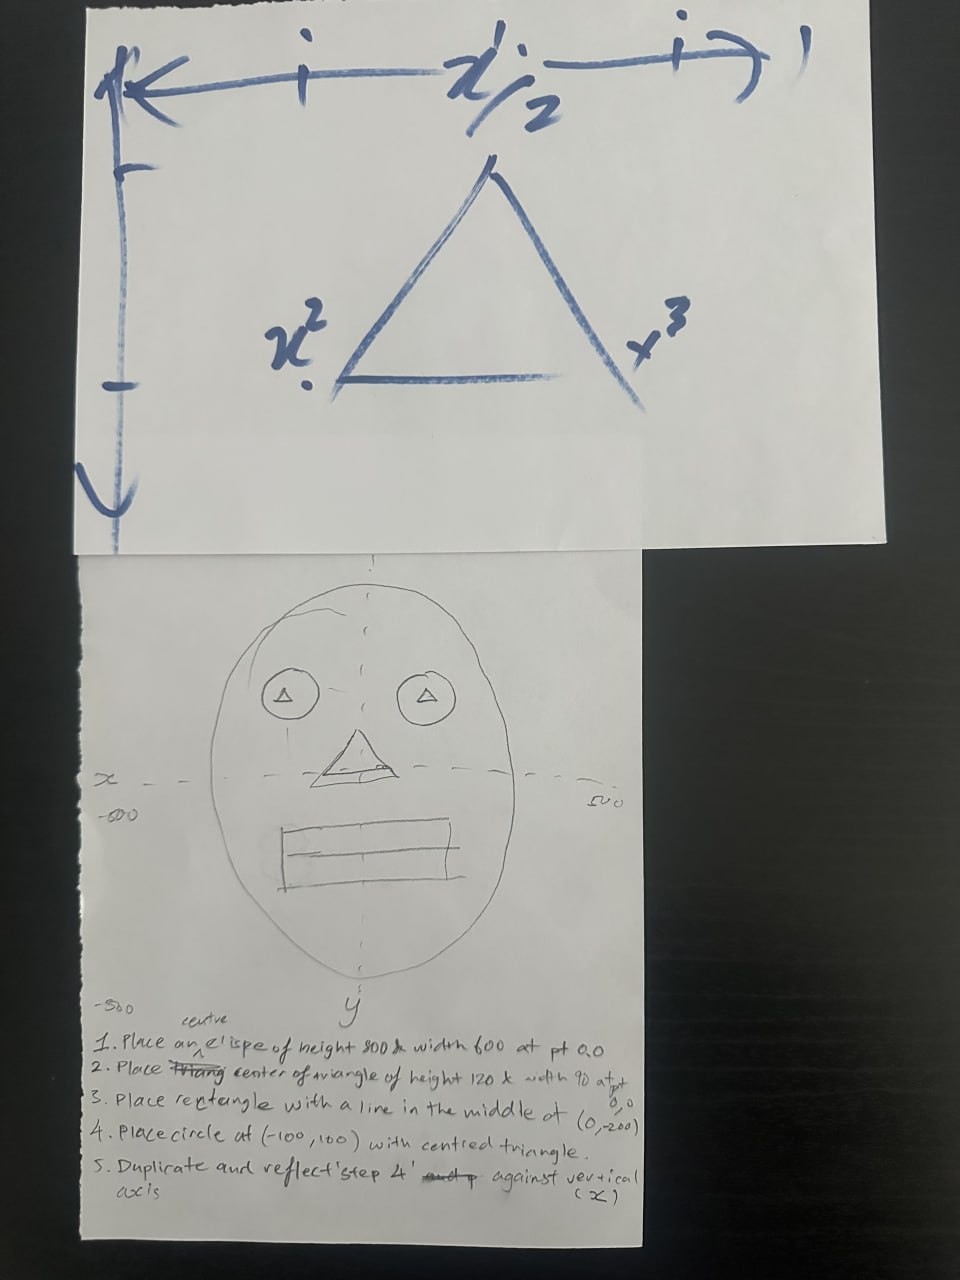 x¹/2
x²
x³
x
-500
500
y
-500
centre
1. Place an elispe of height 800 & width 600 at pt 0,0
2. Place center of triangle of height 120 & width 90 at pt 0,0
3. Place rectangle with a line in the middle at (0,-200)
4. Place circle at (-100,100) with centred triangle.
5. Duplicate and reflect 'step 4' against vertical
axis (x)